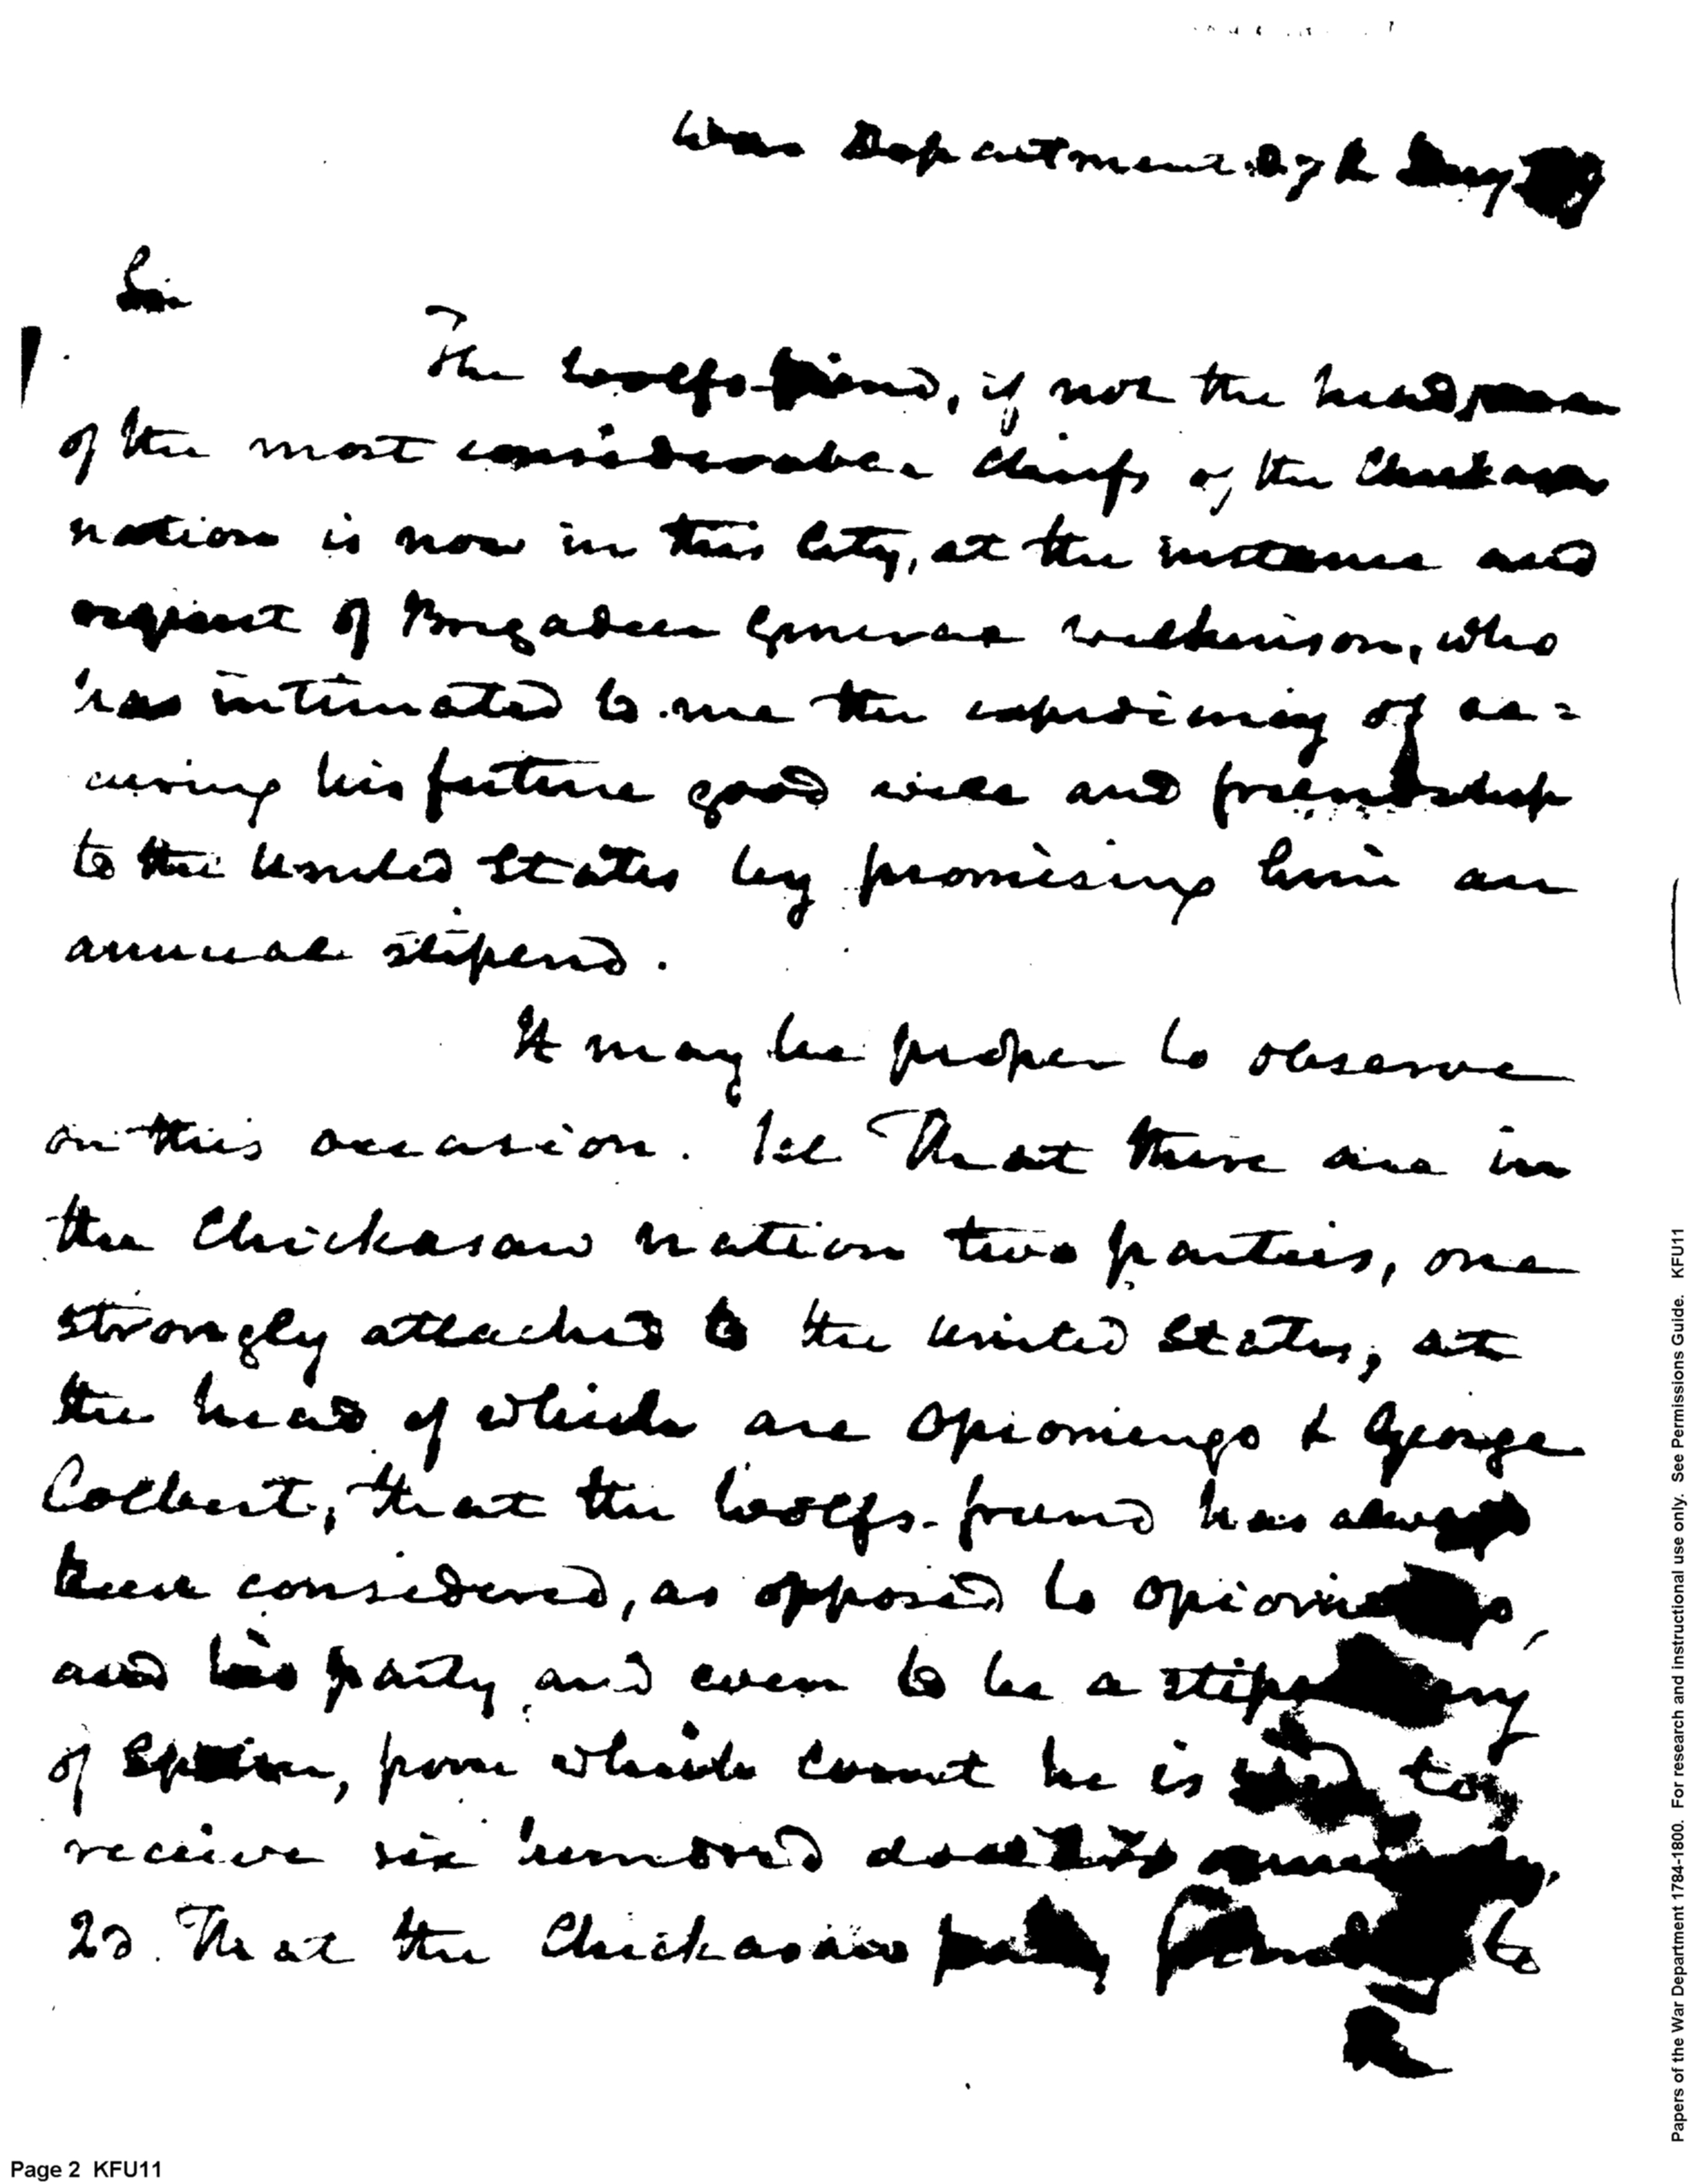 War Department 27th
Sir
The Wolfs-friend, if not the head,
of the most considerable chiefs of the Chickasaw
nation is now in this City, at the instance and
request of Brigadier General Wilkinson, who
has intimated to me the expediency of se=
curing his future good will and friendship
to the United States by promising him an
annual stipend.
It may be proper to observe
on this occasion. 1st That there are in
the Chickasaw nation two parties, one
strongly attached to the United States, at
the head of which are Opiomingo & George
Colbert; that the Wolfs-friend has always
been considered, as opposed to Opiomingo,
and his party and even to be a stipendary
of Spain, from which Court he is said to
receive six hundred dollars annually.
2d. That the Chickasaw party to
Page 2 KFU11
Papers of the War Department 1784-1800. For research and instructional use only. See Permissions Guide. KFU11